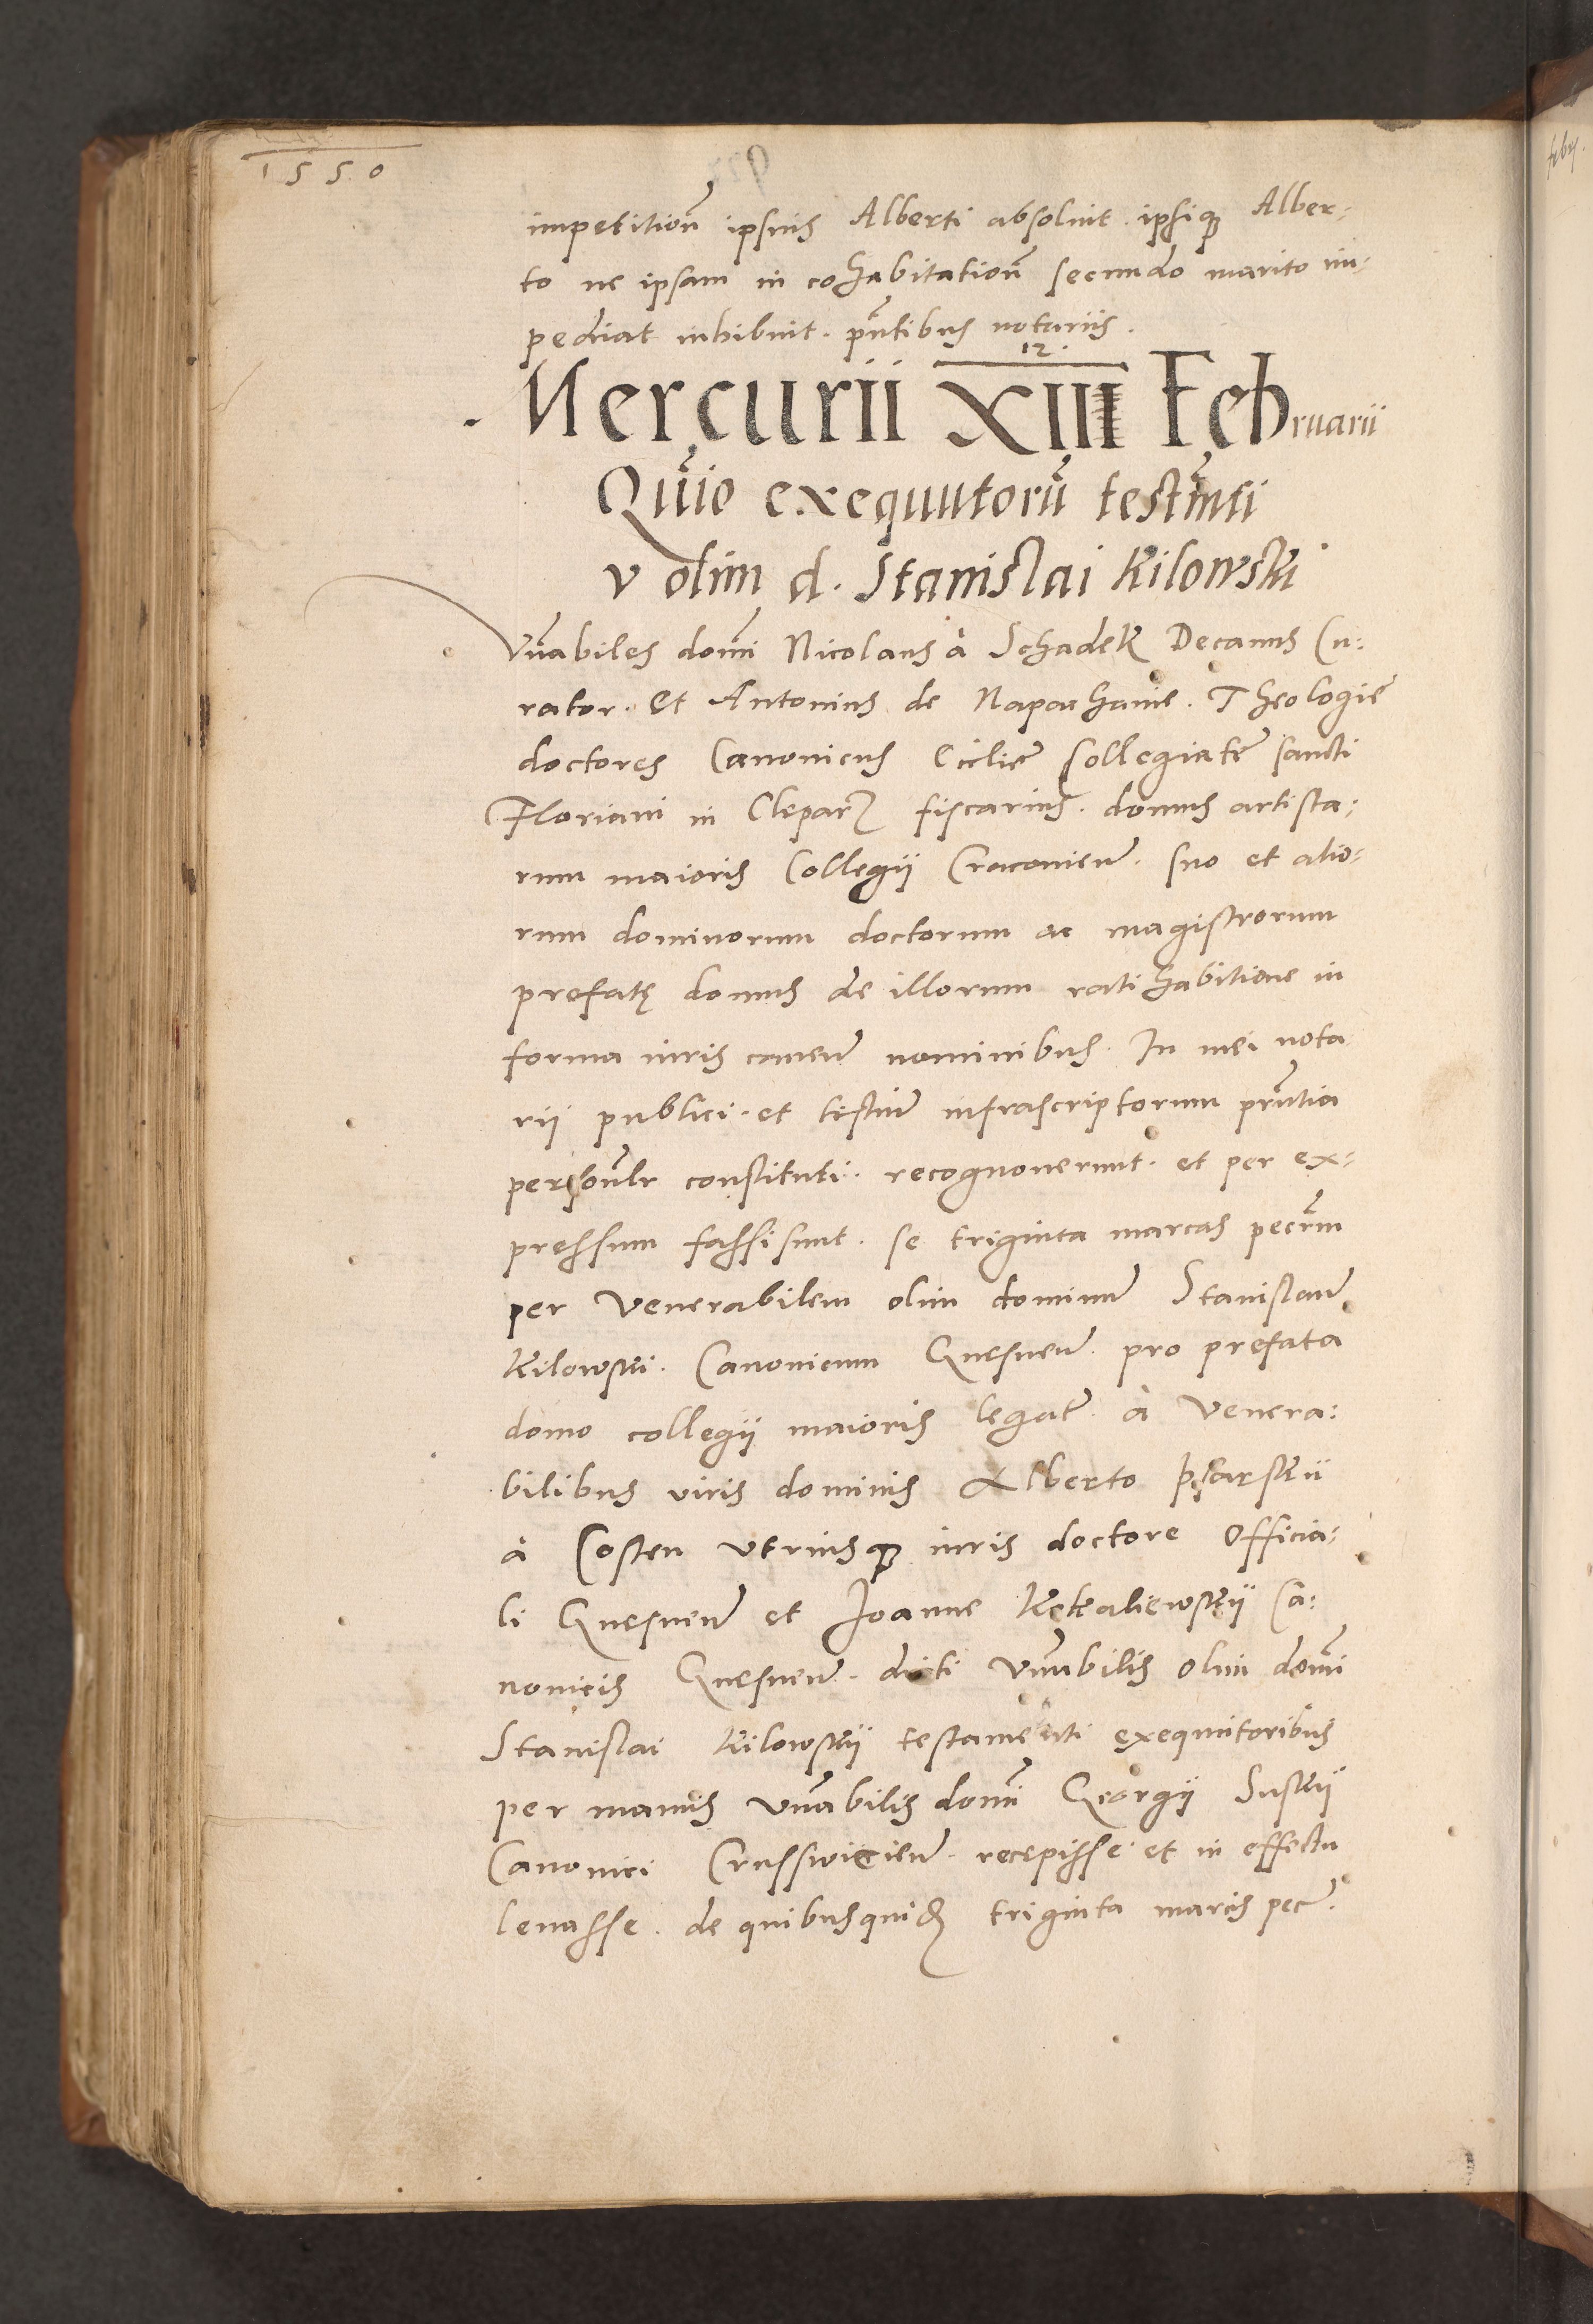 1550
impetitioñ ipsius Alberti absoluit. ipsiqꝫ Alber:
to ne ipsam in cohabitatioñ secundo marito im:
pediat inhibuit. pñtibus notariis.
12.
Mercurii XIII Februarii
Quiẽ exequutorũ testm̃ti
v olim d. Stanislai Kilowski
Vñabiles dom̃i Nicolaus à Schadek Decanus Cu:
rator. Et Antonius de Napachanie. Theologiẽ
doctores Canonicus Eccliẽ Collegiatẽ sancti
Floriani in Cleparz fiscarius. domus artista:
rum maioris Collegii Cracouieñ. suo et alio:
rum dominorum doctorum ac magistrorum
prefatę domus de illorum ratihabitione in
forma iuris caueñ nominibus. In mei nota
rij publici. et testiũ infrascriptorum pñtia
persoñlr constituti. recognouerunt. et per ex:
pressum fassi sunt. se triginta marcas pecũm
per Venerabilem olim dominũ Stanislaũ
Kilowski. Canonicum Gnesneñ. pro prefata
domo collegij maioris legat̃. à Venera:
bilibus viris dominis Alberto Psarskii
à Costen vtriusqꝫ iuris doctore Officia:
li Gnesneñ et Joanne Kokaliewskij Ca:
nonicis Gnesneñ. dicti Vñabilis olim dom̃i
Stanislai Kilowskij testamenti exequutoribus
per manus vñabilis dom̃i Georgij Suskij
Canonici Crusswicieñ. recepisse et in effectu
leuasse. de quibusquidẽ triginta marcis pec̃.